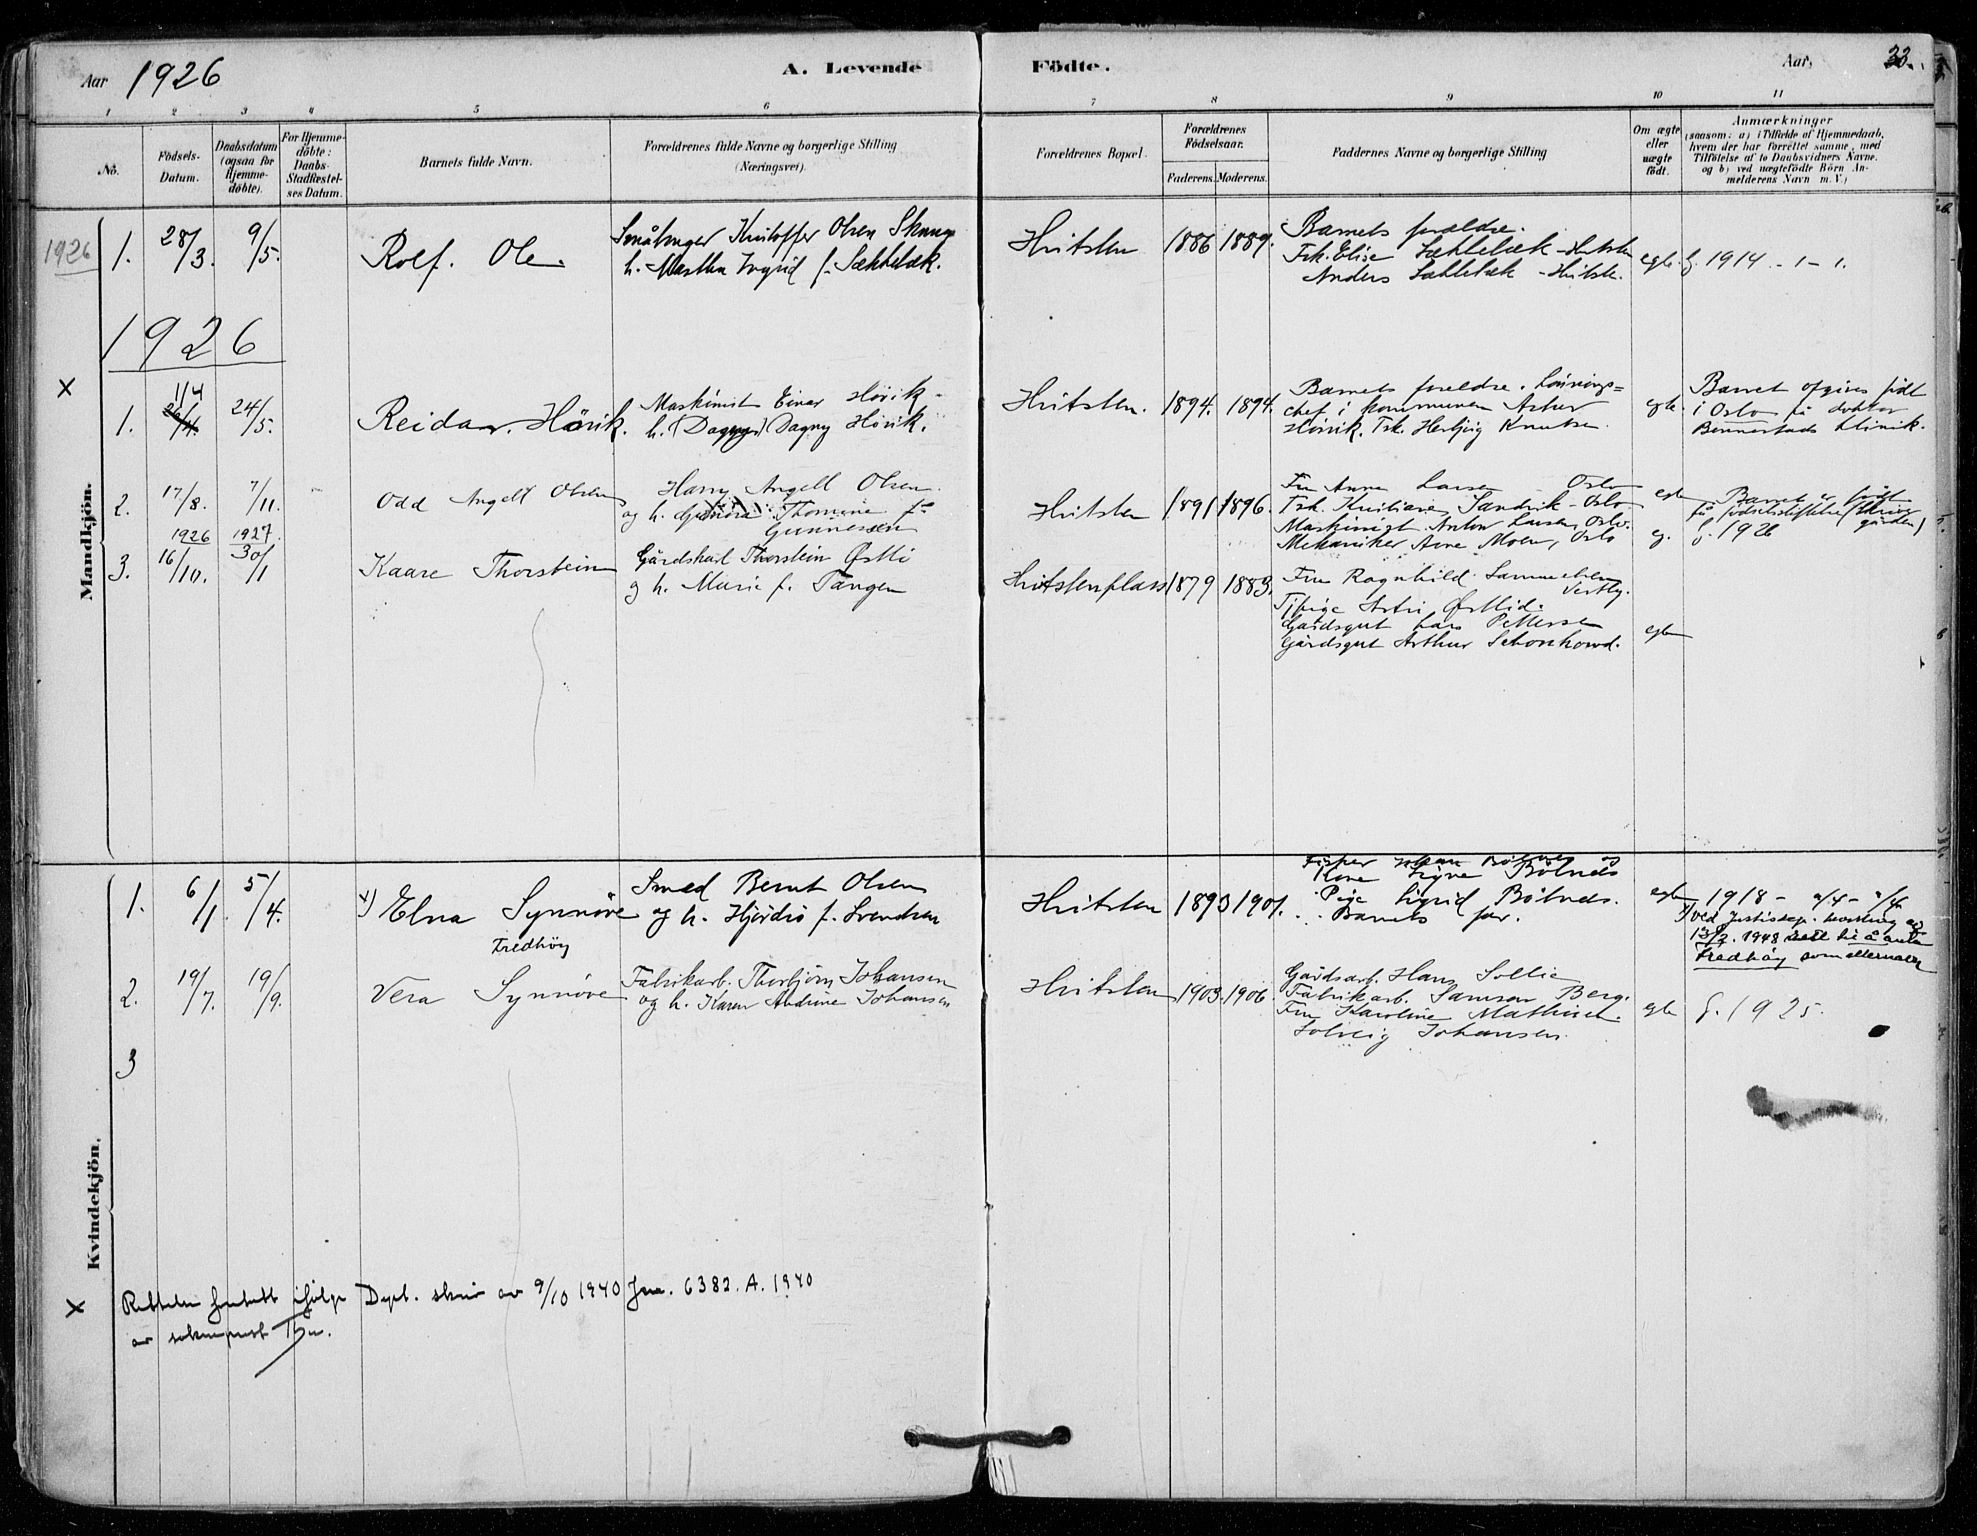 Aar 1926
A. Levende Födte.
Aar,
33.
1 2 3 4 5 6 7 8 9 10 11
No.
Födsels-
Datum.
Daabsdatum
(ogsaa for
Hjemme-
döbte).
For Hjemme-
döbte:
Daabs-
Stadfæstel-
ses Datum.
Barnets fulde Navn.
Forældrenes fulde Navne og borgerlige Stilling
(Næringsvei).
Forældrenes Bopæl.
Forældrenes
Födselsaar.
Faderens. Moderens.
Faddernes Navne og borgerlige Stilling
Om ægte
eller
uægte
født.
Anmærkninger
(saasom: a) i Tilfælde af Hjemmedaab,
hvem der har forrettet samme, med
Tilföielse af to Daabsvidners Navne.
og b) ved uægtefödte Börn An-
melderens Navn m. V.)
Mandkjön.
1926
1. 28/3. 9/5.
Rolf. Ole.
Småbruger Kristoffer Olsen
h. Martha Ingrid f. Sækkelæk.
Hvitsten 1886 1889.
Barnets forældre.
Frk. Elise Sækkelæk - Hvitsten
Anders Sækkelæk - Hvitst.
egte. g. 1914 - 1 - 1.
1926
x
1. 1/4 24/5.
Reidar. Hövik.
Maskinist Einar Hövik -
h. (Dagny) Dagny Hövik.
Hvitsten. 1894. 1894.
Barnets foreldre. Lönnings=
chef i kommunen Astar
Hövik. Frk. Herbjörg Knutsen.
egte.
Barnet opgives født
i Oslo på doktor
Bennestads klinik.
2. 17/8. 7/11.
Odd Angell Olsen
Harry Angell Olsen
og h. Gunora Thomine f.
Gunnesen
Hvitsten 1891 1896.
Fru Anna Larsen Oslo
Frk. Kristiane Sandvik - Oslo
Maskinist Anton Larsen, Oslo.
Mekaniker Arne Moen, Oslo
egte
Barnet er født
på fødselsstiftelse
gården)
g. g. 1926
1926 1927.
3. 16/10. 30/1
Kaare Thorstein
Gårdskarl Thorstein Østli
og h. Marie f. Tangen
Hvitstenplass 1879 1883.
Fru Ragnhild Samuelsen
Vestby.
Tjpige Astri Østlid.
Gårdsgut Lars Pettersen
Gårdsgut Arthur Schouhowd.
egte
Kvindekjön.
1. 6/1. 5/4.
x) Elna Synnöve
Fredhöy
Smed Bernt Olsen
og h. Hjördis f. Svendsen
Hvitsten 1893 1901.
Fisker Johan Bölnes og
Kone Signe Bölnes
Pige Sigrid Bölnes.
Barnets far.
egte 1918 -
x) ved Justisdep. bevilling av
13/2. 1948 rett til å anta
Fredhöy som etternavn
2. 19/7. 19/9.
Vera Synnöve
Fabrikarb. Thorbjörn Johansen
og h. Karen Andrine Johansen
Hvitsten 1903. 1906.
Gårdsarb. Hans Sollie
Fabrikarb. Samson Berg.
Fru Karoline Mathisen.
Solveig Johansen.
egte g. 1925.
3
x
Rettelsen foretatt ifölge Dept. skriv av 9/10 1940 Jnr. 6382. A. 1940
av sokneprest